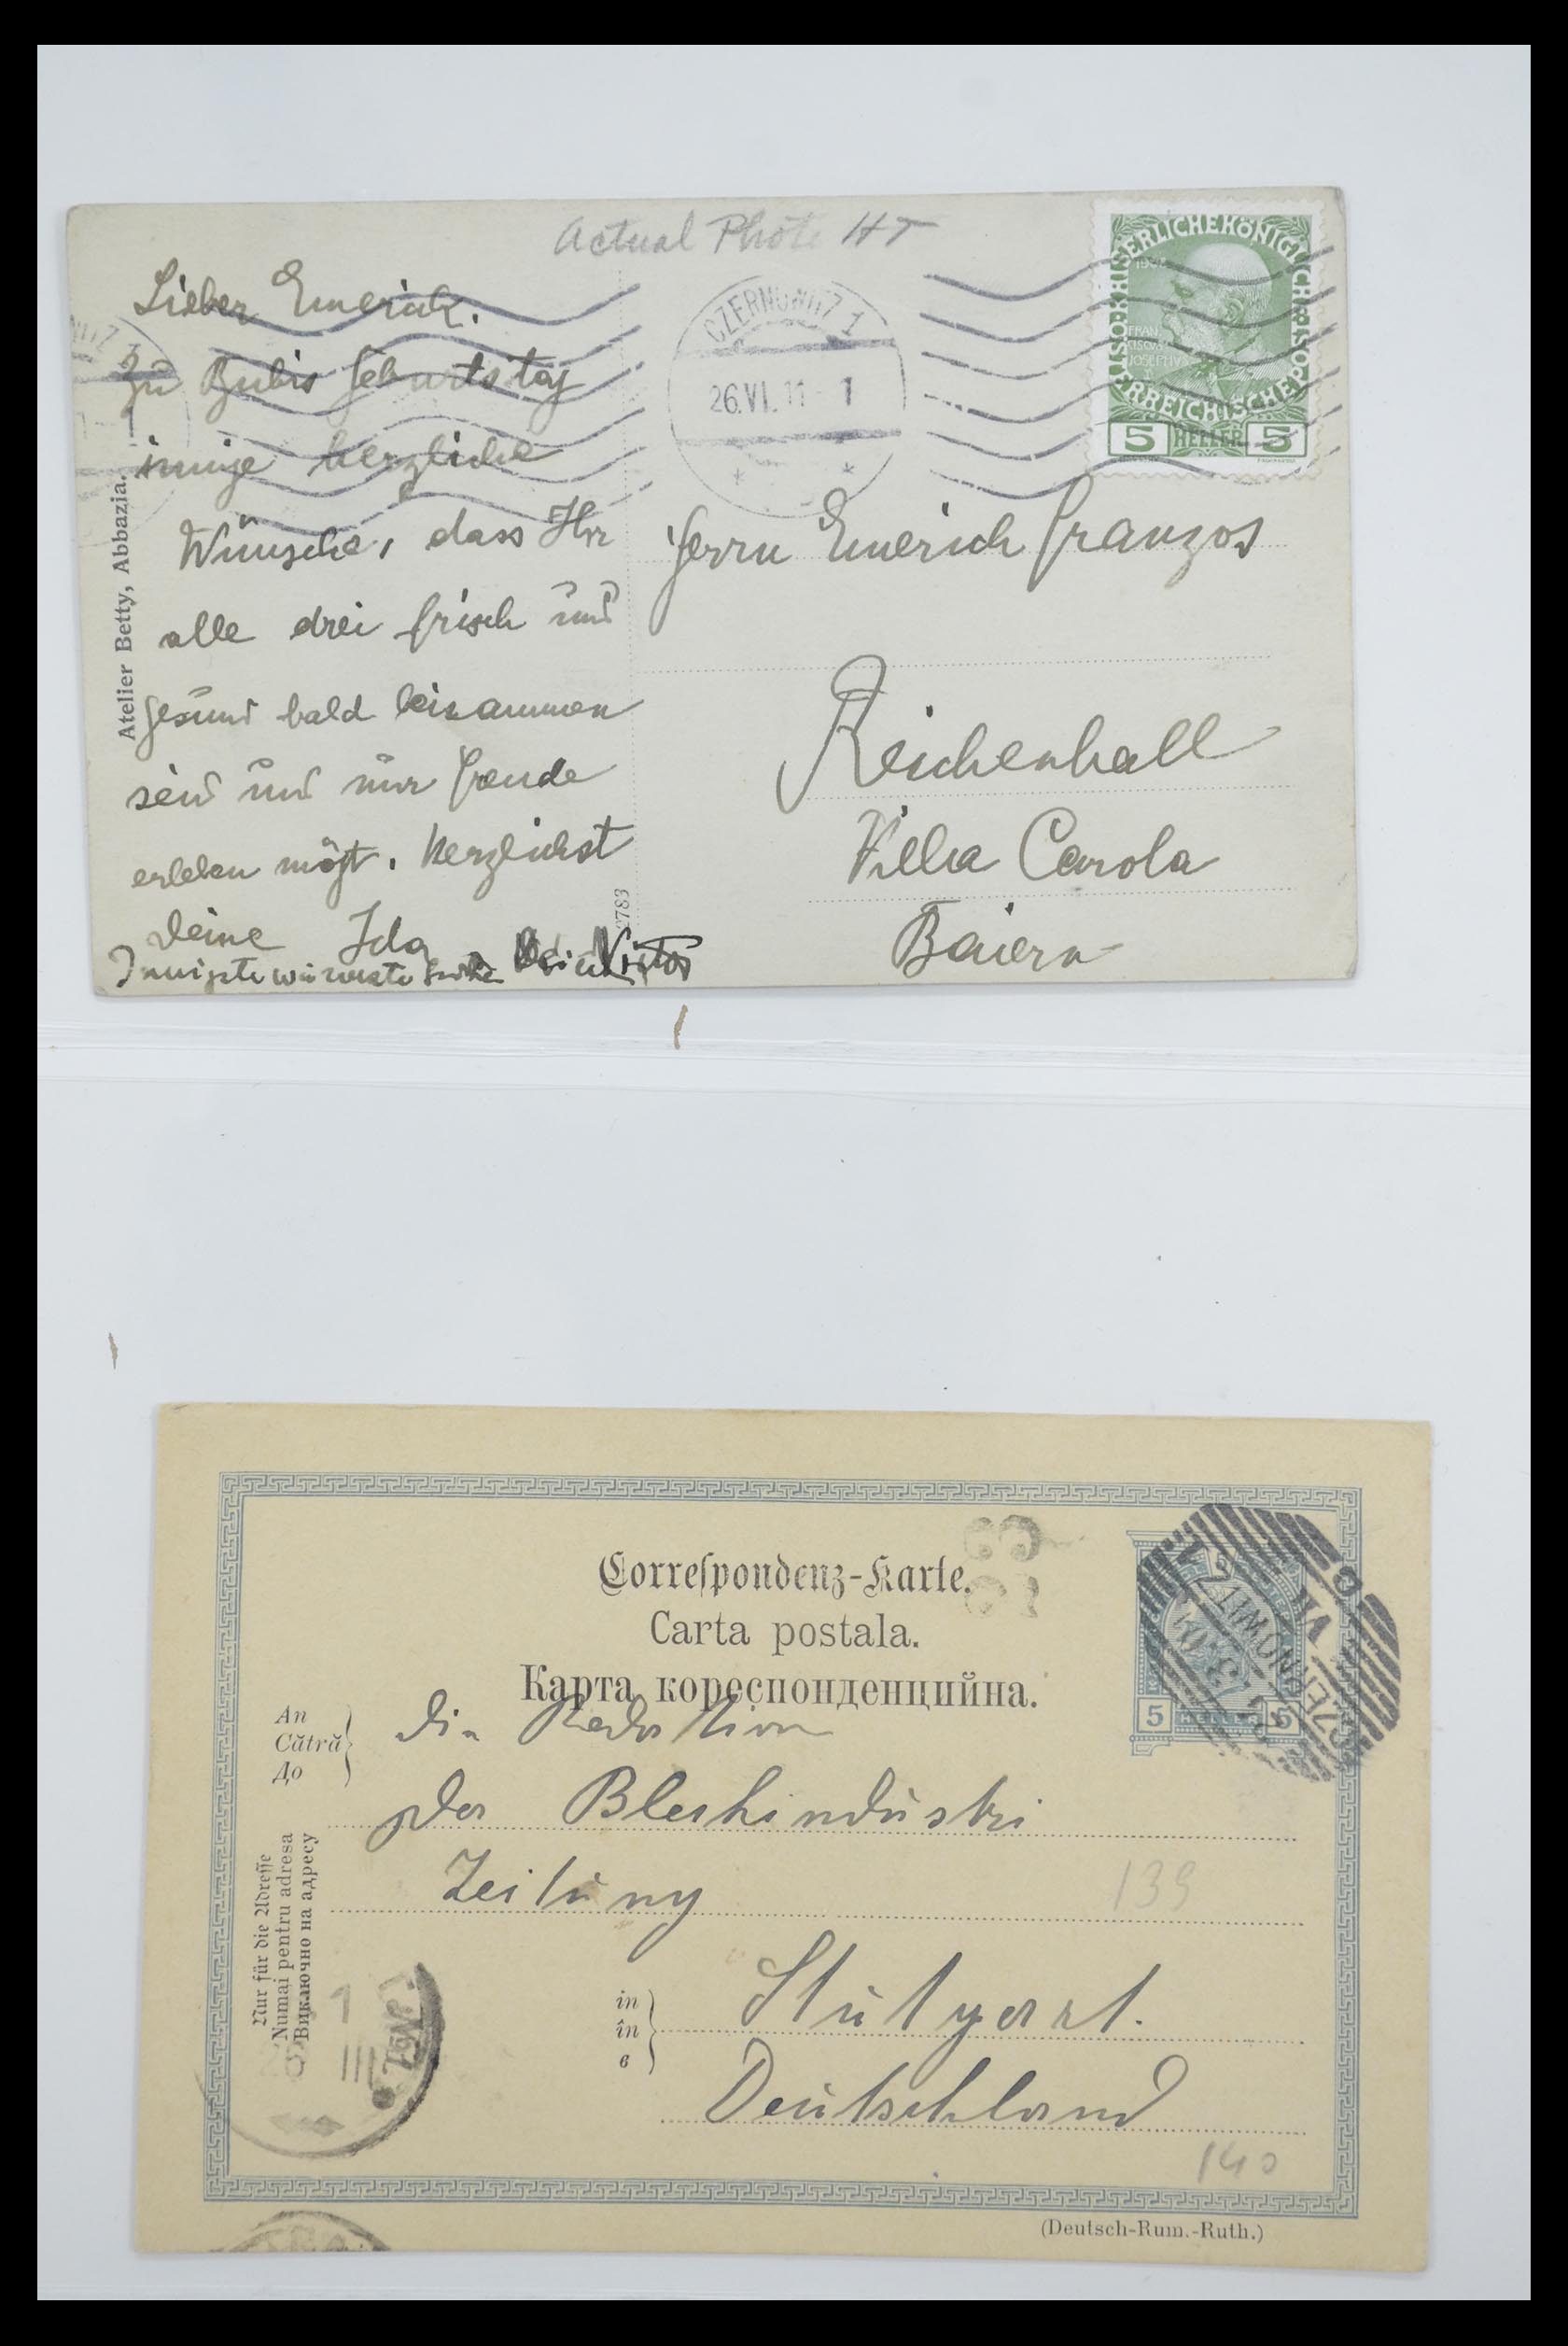 Actual Photo HT
Lieber Emerich.
Zu Bubis Geburtstag
innige herzliche
Wünsche, dass Ihr
alle drei frisch und
gesund bald beisammen
seid und nur Freude
erleben mögt. Herzlichst
Deine Ida
Innigste
Atelier Betty, Abbazia.
2783
CZERNOWITZ 1
26.VI.11 - 1
KAISERLICHEKÖNIGLICHE ÖSTERREICHISCHE POST
1908
FRAN
CISCVS
JOSEPHVS
5 HELLER 5
Herrn Emerich Franzos
Reichenhall
Villa Carola
Baiern
Correſpondenz-Karte.
Carta postala.
Карта кореспонденцийна.
An
Cătră
До
die Redaktion
der Blechindustri
Zeitung
139
Nur für die Adreſſe
Numai pentru adresa
Виключно на адресу
in
în
в
Stutgart.
Deutschland
140
5 HELLER 5
CZERNOWITZ
1
III
(Deutsch-Rum.-Ruth.)